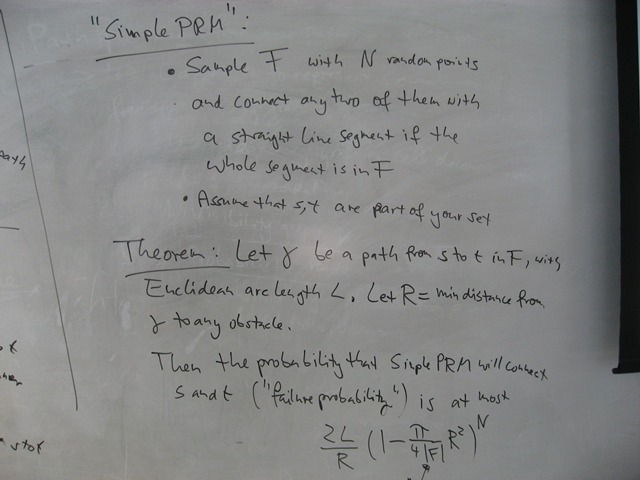 "Simple PRM":
• Sample F with N random points
and connect any two of them with
a straight line segment if the
whole segment is in F
• Assume that s,t are part of your set
Theorem: Let γ be a path from s to t in F, with
Euclidean arc length L. Let R = min distance from
γ to any obstacle.
Then the probability that Simple PRM will connect
s and t ("failure probability") is at most
2L/R (1 - π/4|F| R²)^N
ath
s to t